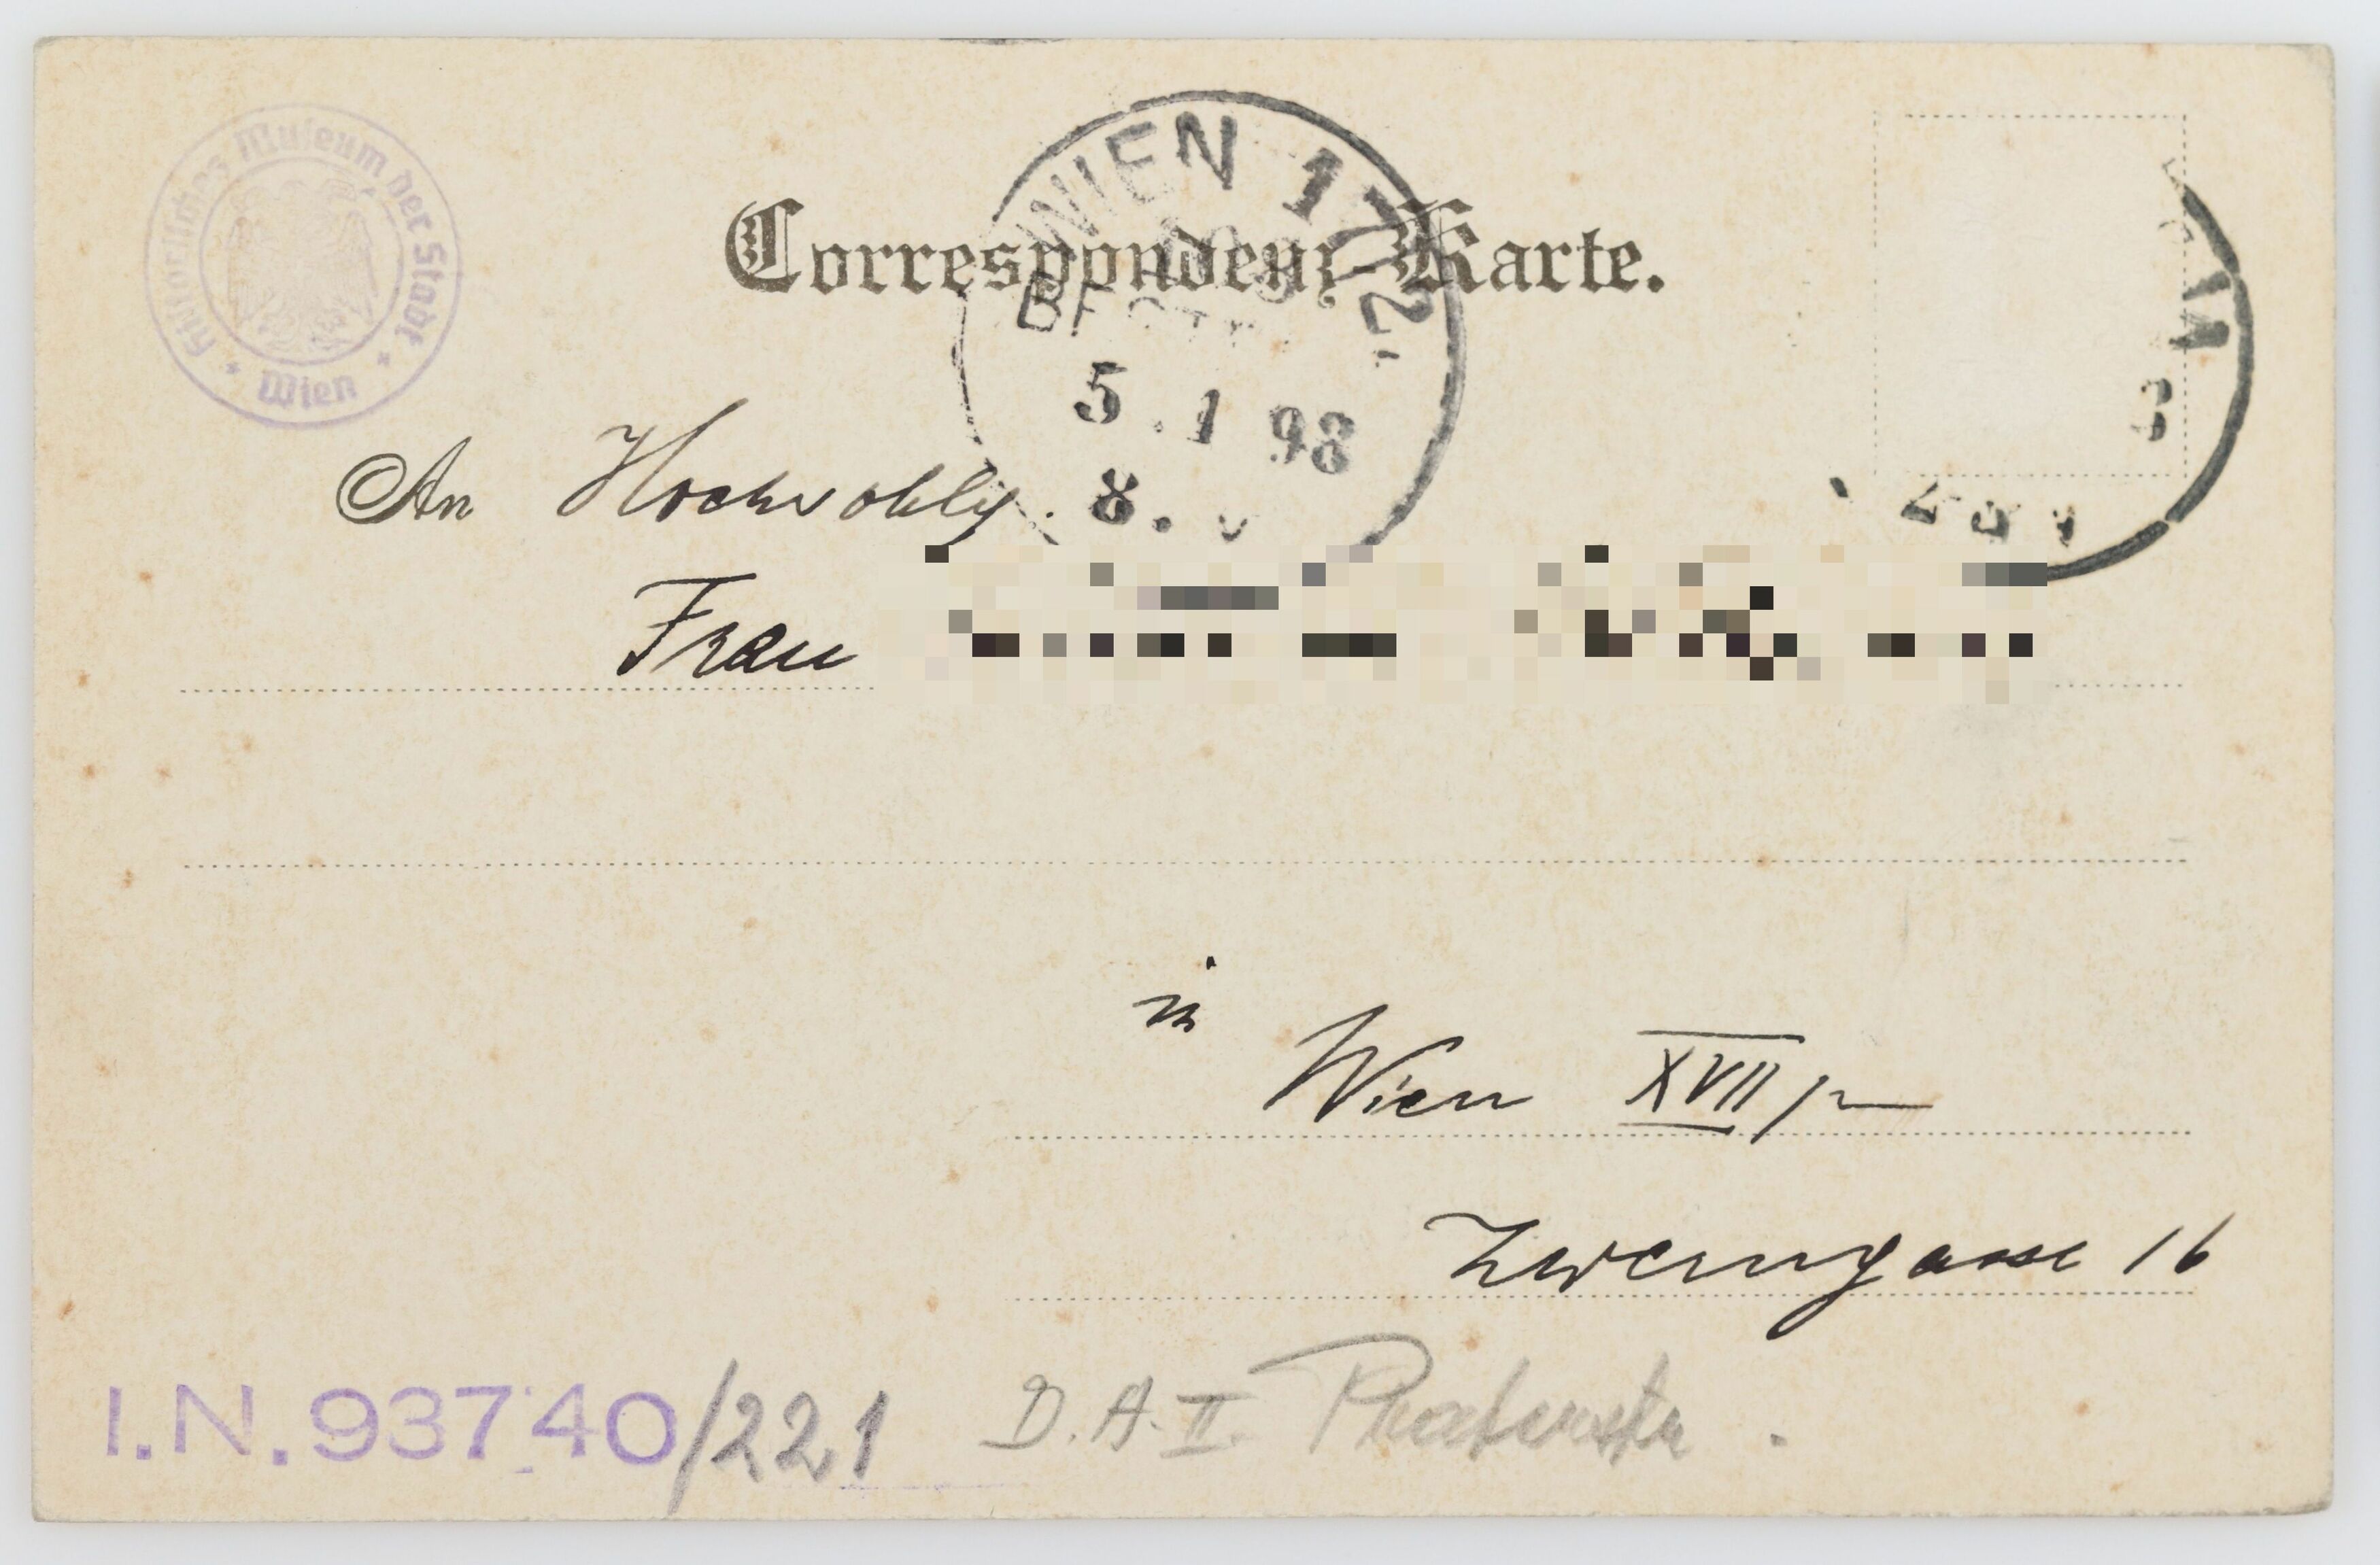 Historisches Museum der Stadt
Wien
WIEN 17/2
BEST
5.1 98
8. V
Correspondenz-Karte.
An Hochwohlg.
Frau
in
Wien XVII/2
Zwerngasse 16
I.N. 93740/221
D.A. II. Praterstr.